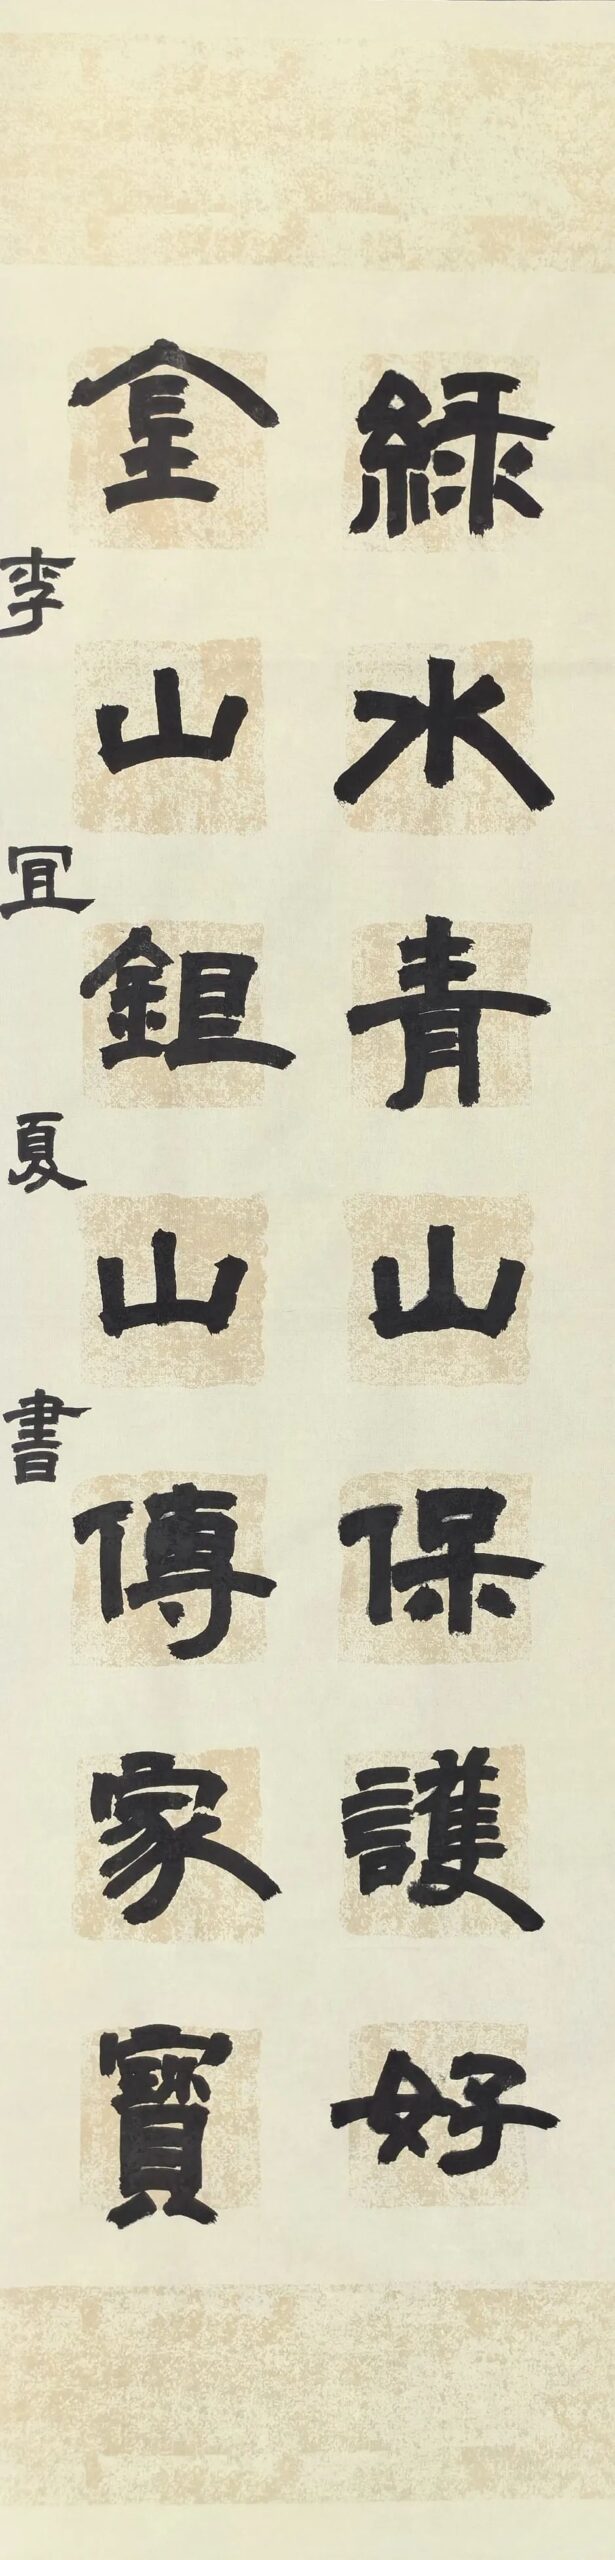 綠水青山保護好
金山鉏山傳家寶
李宜夏書